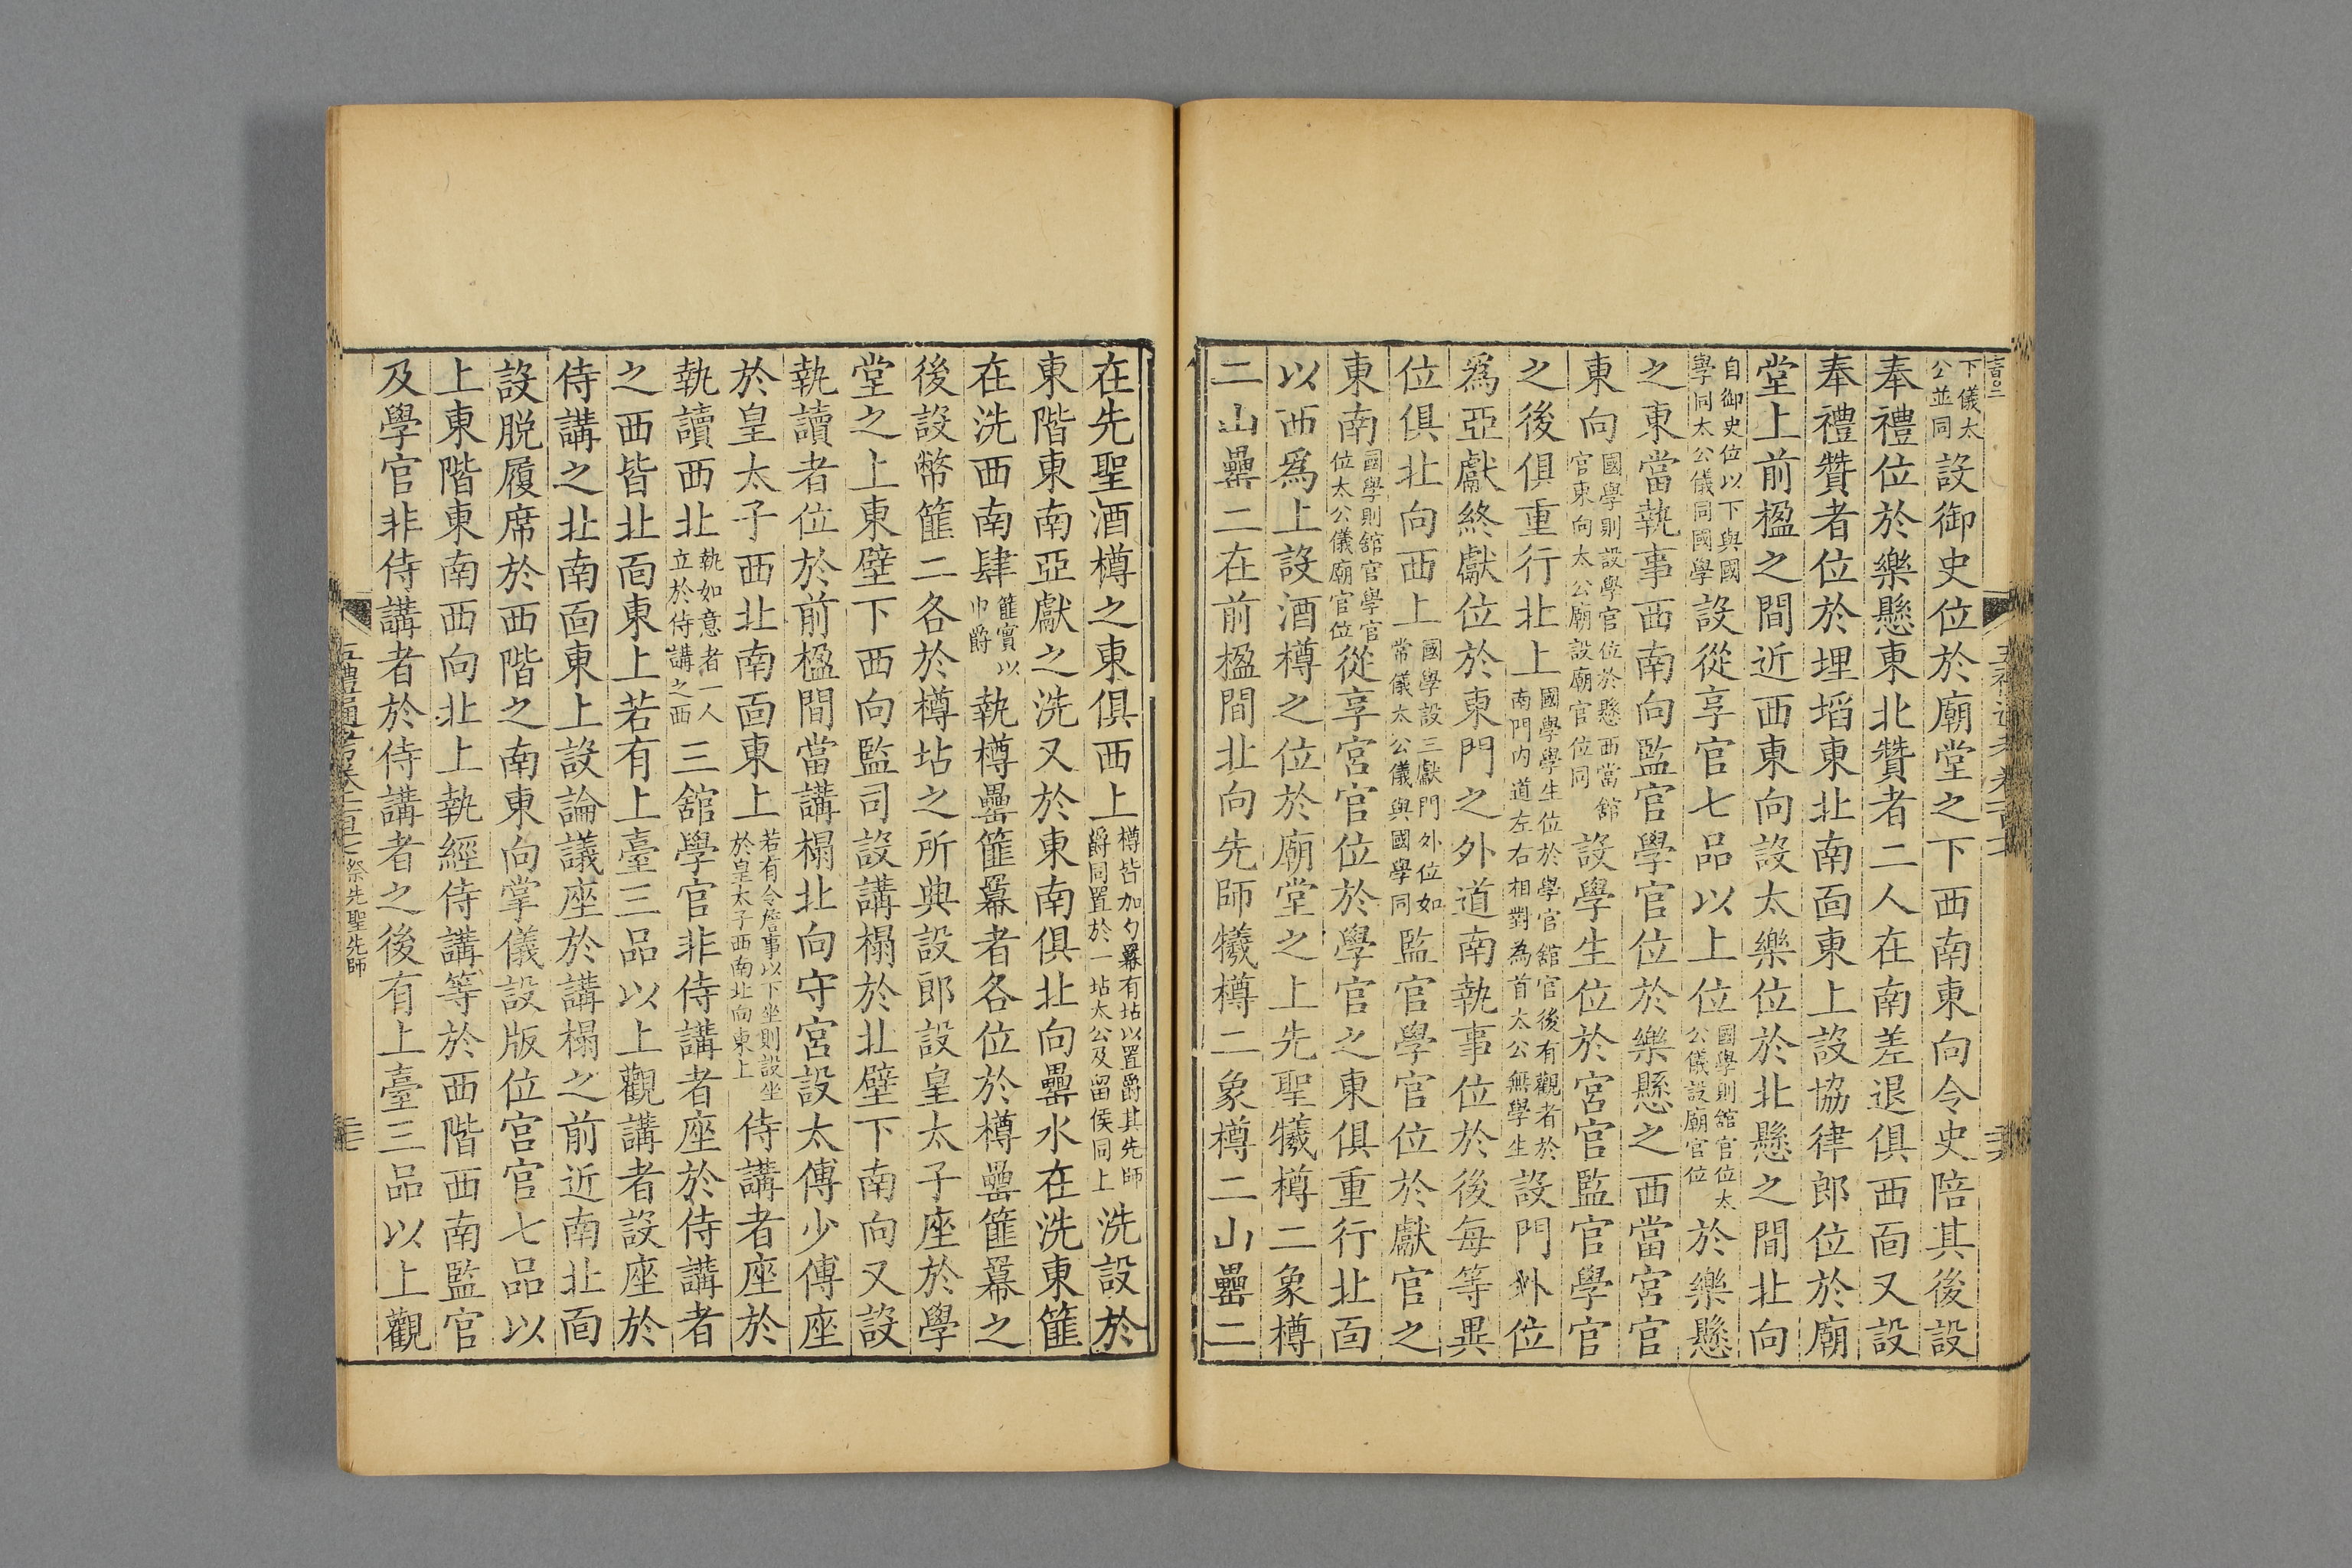 下儀太公並同設御史位於廟堂之下西南東向令史陪其後設
奉禮位於樂懸東北贊者二人在南差退俱西面又設
奉禮贊者位於埋塪東北南面東上設協律郎位於廟
堂上前楹之間近西東向設太樂位於北懸之間北向
自御史位以下與國學同太公儀同國學設從享官七品以上位國學則舘官位太公儀設廟官位於樂懸
之東當執事西南向監官學官位於樂懸之西當宮官
東向國學則設學官位於懸西當舘官東向太公廟設廟官位同設學生位於宮官監官學官
之後俱重行北上國學學生位於學官舘官後有觀者於南門內道左右相對為首太公無學生設門外位
爲亞獻終獻位於東門之外道南執事位於後每等異
位俱北向西上國學設三獻門外位如常儀太公儀與國學同監官學官位於獻官之
東南國學則舘官學官位太公儀廟官位從享宮官位於學官之東俱重行北面
以西爲上設酒樽之位於廟堂之上先聖犧樽二象樽
二山罍二在前楹間北向先師犧樽二象樽二山罍二
在先聖酒樽之東俱西上樽皆加勺羃有坫以置爵其先師爵同置於一坫太公及留侯同上洗設於
東階東南亞獻之洗又於東南俱北向罍水在洗東篚
在洗西南肆篚實以巾爵執樽罍篚羃者各位於樽罍篚羃之
後設幣篚二各於樽坫之所典設郎設皇太子座於學
堂之上東壁下西向監司設講榻於北壁下南向又設
執讀者位於前楹間當講榻北向守宮設太傅少傅座
於皇太子西北南面東上若有令詹事以下坐則設坐於皇太子西南北向東上侍講者座於
執讀西北執如意者一人立於侍講之西三舘學官非侍講者座於侍講者
之西皆北面東上若有上臺三品以上觀講者設座於
侍講之北南面東上設論議座於講榻之前近南北面
設脫履席於西階之南東向掌儀設版位宮官七品以
上東階東南西向北上執經侍講等於西階西南監官
及學官非侍講者於侍講者之後有上臺三品以上觀
五禮通考卷一百十七 祭先聖先師